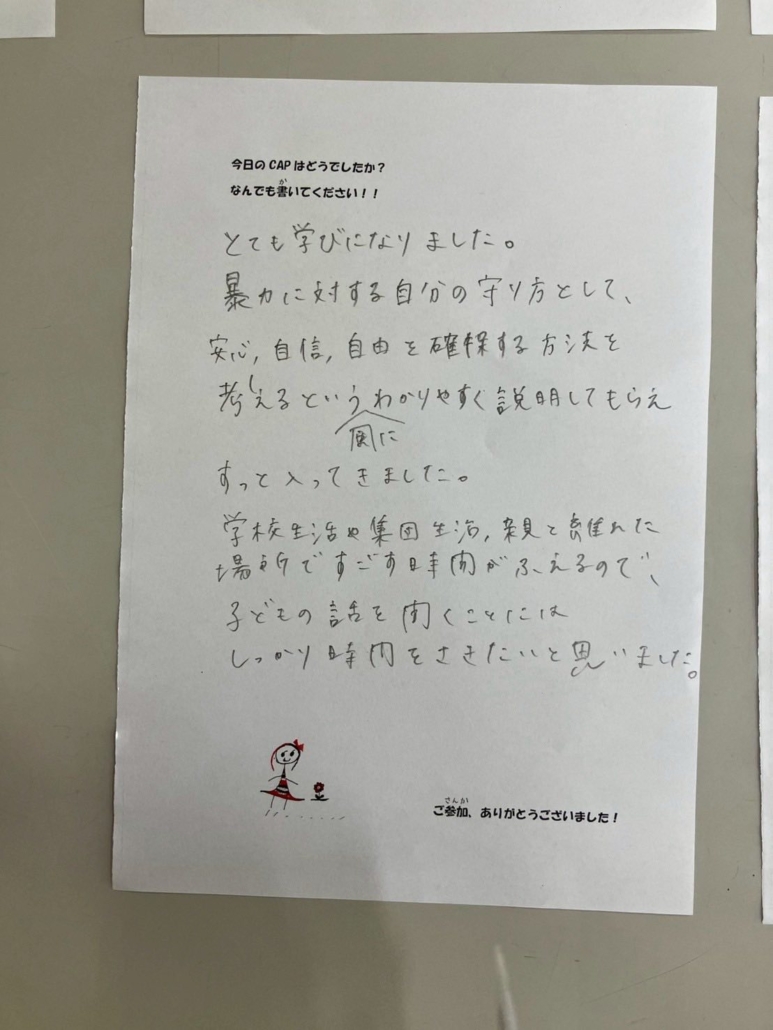 今日のCAPはどうでしたか？
なんでも書いてください！！
とても学びになりました。
暴力に対する自分の守り方として、
安心,自信,自由を確保する方法を
考えるという風にわかりやすく説明してもらえ
すっと入ってきました。
学校生活や集団生活,親と離れた
場所ですごす時間がふえるので、
子どもの話を聞くことには
しっかり時間をさきたいと思いました。
ご参加、ありがとうございました！